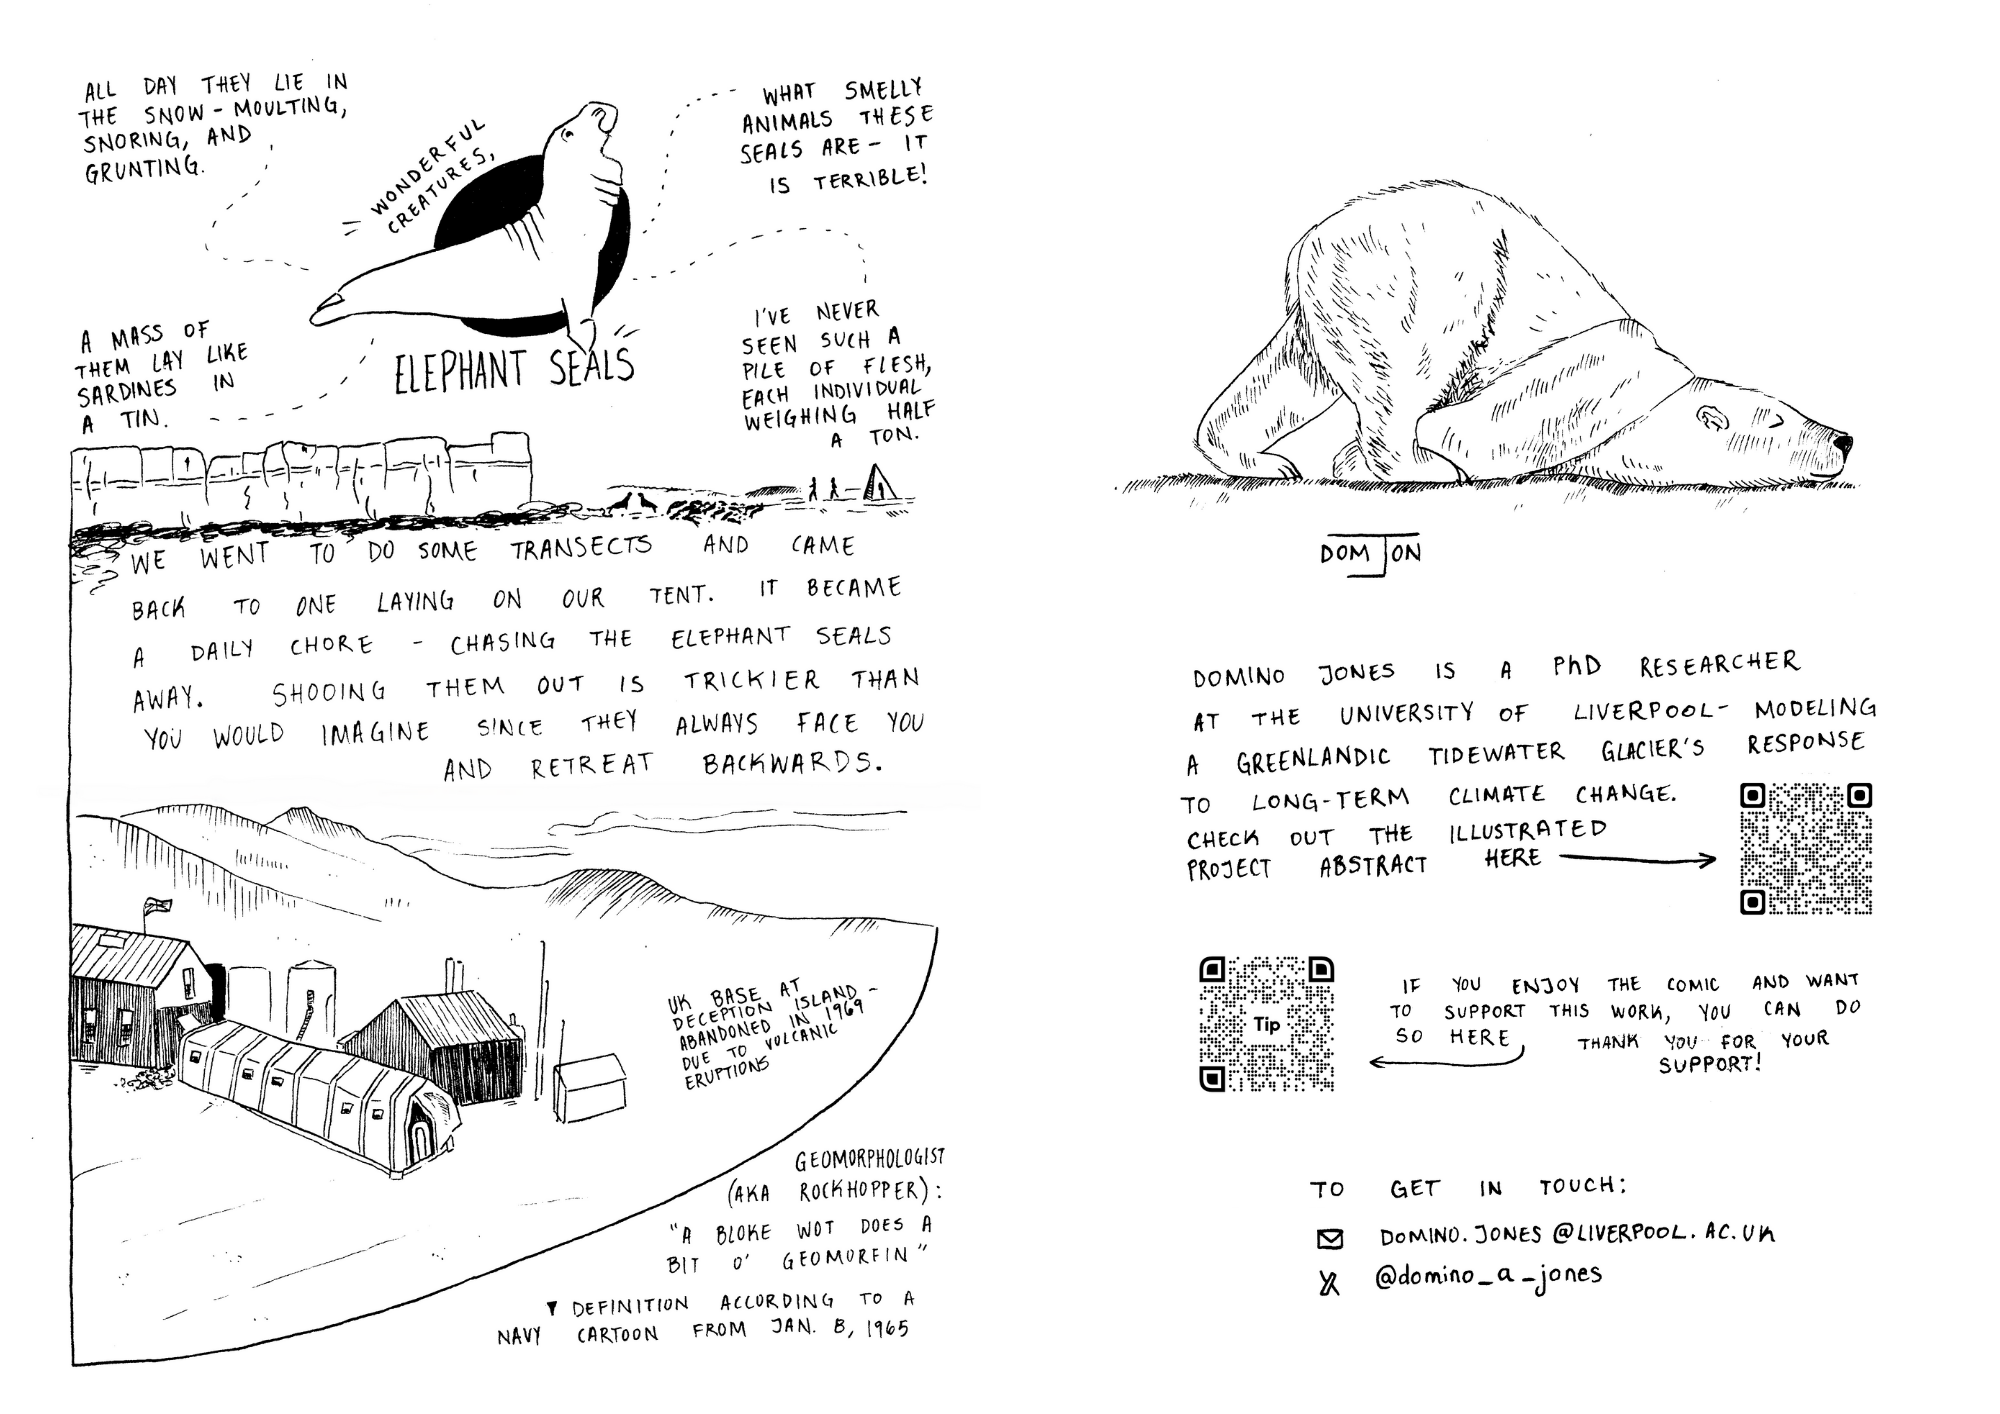 ALL DAY THEY LIE IN
THE SNOW - MOULTING,
SNORING, AND
GRUNTING.
WONDERFUL
CREATURES,
WHAT SMELLY
ANIMALS THESE
SEALS ARE - IT
IS TERRIBLE!
A MASS OF
THEM LAY LIKE
SARDINES IN
A TIN.
ELEPHANT SEALS
I'VE NEVER
SEEN SUCH A
PILE OF FLESH,
EACH INDIVIDUAL
WEIGHING HALF
A TON.
WE WENT TO DO SOME TRANSECTS AND CAME
BACK TO ONE LAYING ON OUR TENT. IT BECAME
A DAILY CHORE - CHASING THE ELEPHANT SEALS
AWAY. SHOOING THEM OUT IS TRICKIER THAN
YOU WOULD IMAGINE SINCE THEY ALWAYS FACE YOU
AND RETREAT BACKWARDS.
UK BASE AT
DECEPTION ISLAND -
ABANDONED IN 1969
DUE TO VOLCANIC
ERUPTIONS
GEOMORPHOLOGIST
(AKA ROCKHOPPER):
"A BLOKE WOT DOES A
BIT O' GEOMORFIN"
▼ DEFINITION ACCORDING TO A
NAVY CARTOON FROM JAN. 8, 1965
DOM JON
DOMINO JONES IS A PhD RESEARCHER
AT THE UNIVERSITY OF LIVERPOOL- MODELING
A GREENLANDIC TIDEWATER GLACIER'S RESPONSE
TO LONG-TERM CLIMATE CHANGE.
CHECK OUT THE ILLUSTRATED
PROJECT ABSTRACT HERE
Tip
IF YOU ENJOY THE COMIC AND WANT
TO SUPPORT THIS WORK, YOU CAN DO
SO HERE THANK YOU FOR YOUR
SUPPORT!
TO GET IN TOUCH:
DOMINO.JONES@LIVERPOOL.AC.UK
@domino_a_jones